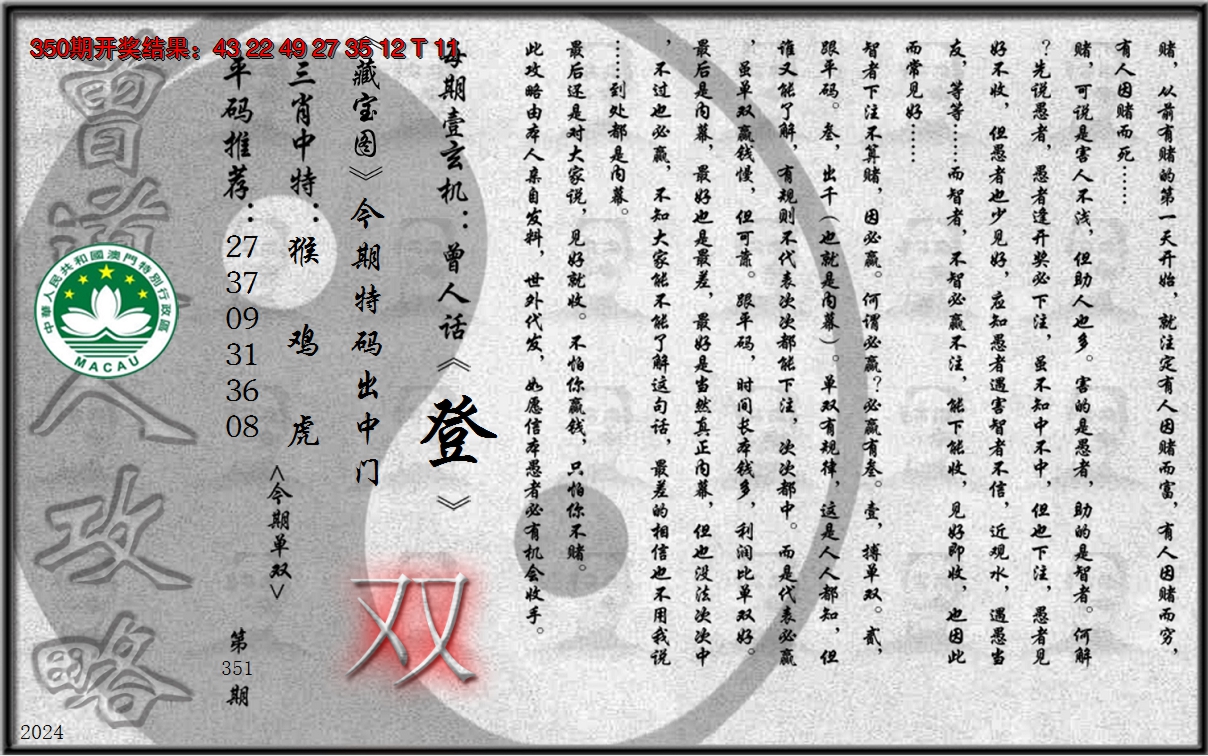 350期开奖结果：43 22 49 27 35 12 T 11
赌，从前有赌的第一天开始，就注定有人因赌而富，有人因赌而穷，
有人因赌而死……
赌，可说是害人不浅，但助人也多。害的是愚者，助的是智者。何解
？先说愚者，愚者逢开奖必下注，虽不知中不中，但也下注，愚者见
好不收，但愚者也少见好，应知愚者遇害智者不信，近观水，遇愚当
友，等等……而智者，不智必赢不注，能下能收，见好即收，也因此
而常见好……
智者下注不算赌，因必赢。何谓必赢？必赢有叁。壹，搏单双。贰，
跟平码。叁，出千（也就是内幕）。单双有规律，这是人人都知，但
谁又能了解，有规则不代表次次都能下注，次次都中。而是代表必赢
，虽单双赢钱慢，但可靠。跟平码，时间长本钱多，利润比单双好。
最后是内幕，最好也是最差，最好是当然真正内幕，但也没法次次中
，不过也必赢，不知大家能不能了解这句话，最差的相信也不用我说
……到处都是内幕。
最后还是对大家说，见好就收。不怕你赢钱，只怕你不赌。
此攻略由本人亲自发料，世外代发，如愿信本愚者必有机会收手。
每期壹玄机：曾人话《登》
《藏宝图》今期特码出中门
双
三肖中特：猴 鸡 虎
<今期单双>
平码推荐：27 37 09 31 36 08
第351期
曾道人攻略
中華人民共和國澳門特別行政區
MACAU
2024